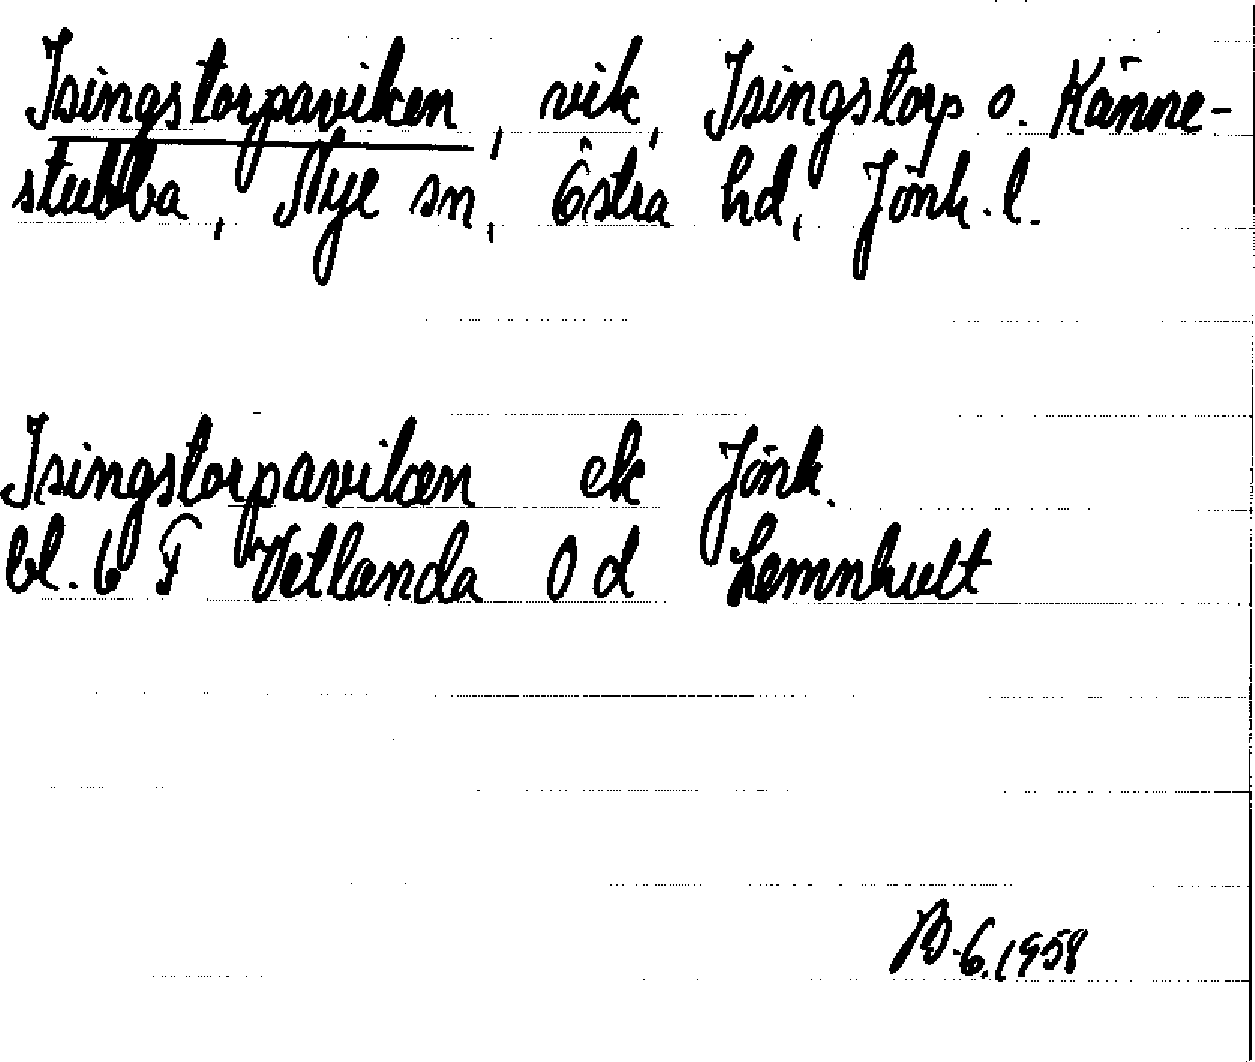 Isingstorpaviken, vik, Isingstorp o. Känne-
stubba, Nye sn, Östra hd, Jönk. l.
Isingstorpaviken ek Jönk.
bl. 6 F Vetlanda 0 d Lemnhult
6.1958